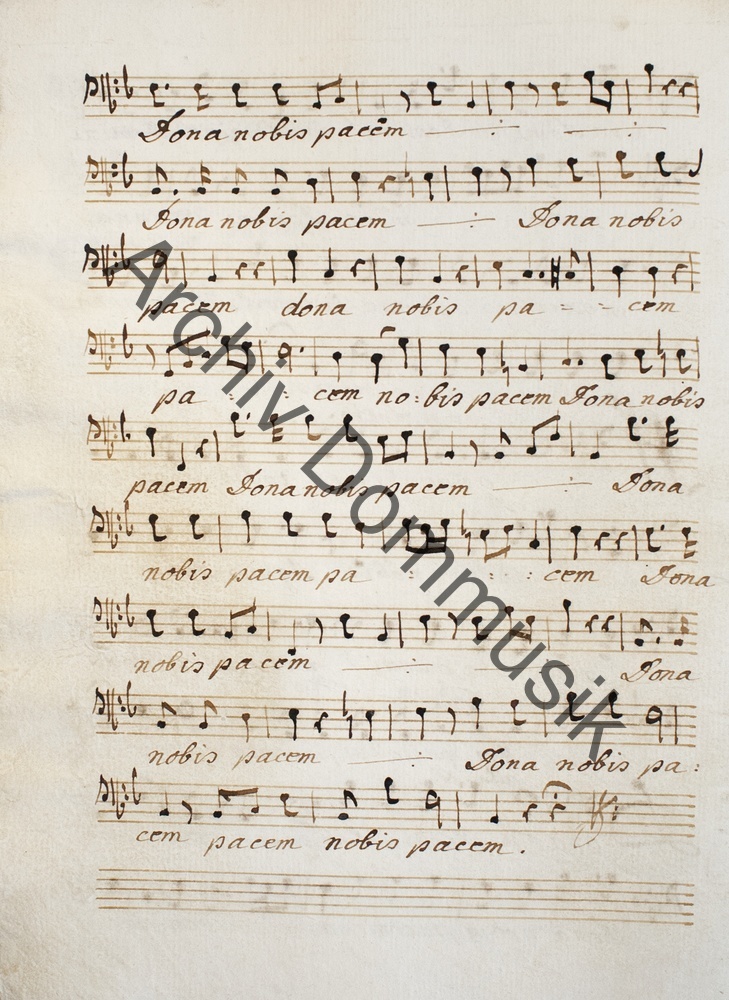 Dona nobis pacem
Dona nobis pacem Dona nobis
pacem dona nobis pa - - cem
pa - - cem no : bis pacem Dona nobis
pacem Dona nobis pacem Dona
nobis pacem pa : : : cem Dona
nobis pacem Dona
nobis pacem Dona nobis pa :
cem pacem nobis pacem .
Archiv Dommusik